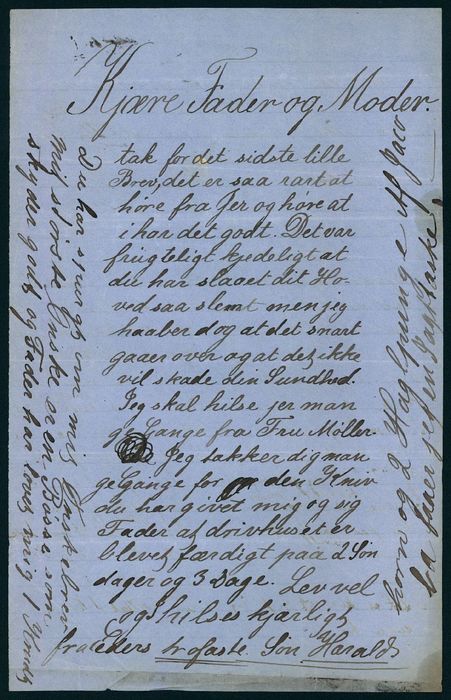 Kjære Fader og Moder.
tak for det sidste lille
Brev, det er saa rart at
høre fra Jer og høre at
i har det godt. Det var
frugteligt kjedeligt at
du har slaaet dit Ho-
ved saa slemt men jeg
haaber dog at det snart
gaaer over og at det ikke
vil skade din Sundhed.
Jeg skal hilse jer man
ge Gange fra Fru Møller.
Jeg takker dig man
ge gange for den Kniv
du har givet mig og sig
Fader at drivhuset er
blevet færdigt paa 2 Søn
dager og 3 Dage. Lev vel
og hilses kjærligt
fra Eders trofaste Søn Harald
Du har spurgt om mis Ønskebrev
mit største Ønske er en Bøsse som
skyder godt og Fader har lovet mig 1
horn og 2 Haglpunge Af
faaer jeg en